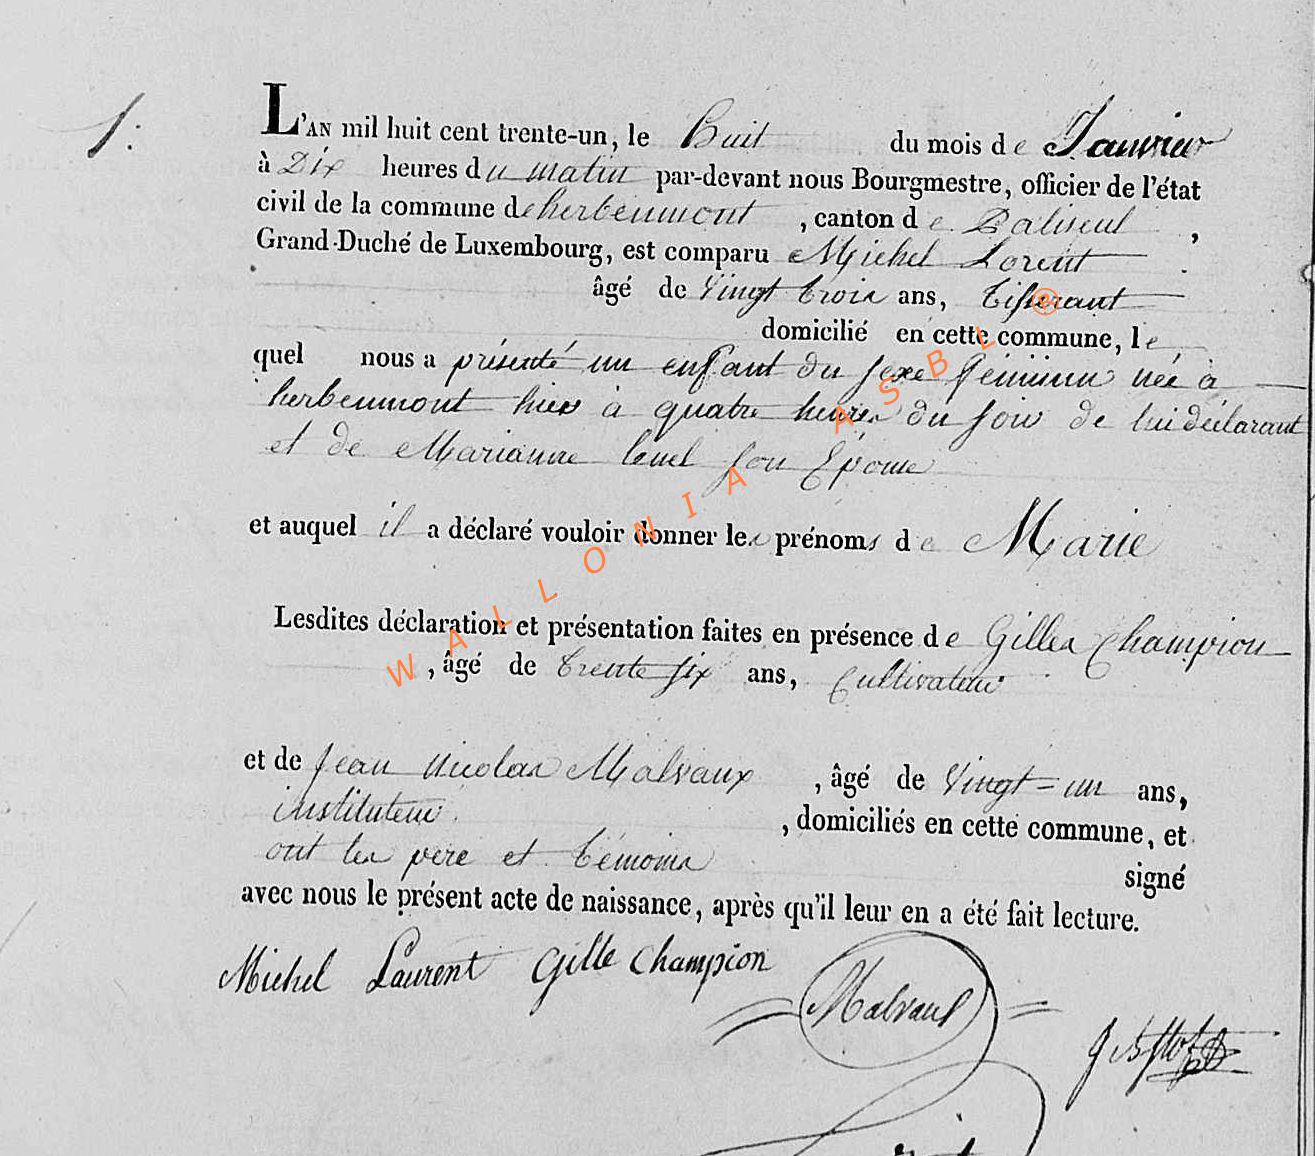 1.
L'AN mil huit cent trente-un, le huit du mois de Janvier
à Dix heures du matin par-devant nous Bourgmestre, officier de l'état
civil de la commune de herbeumont, canton de Paliseul,
Grand-Duché de Luxembourg, est comparu Michel Lorent
âgé de Vingt trois ans, Tisserant
domicilié en cette commune, le
quel nous a présenté un enfant du sexe féminin née à
herbeumont hier à quatre heures du soir de lui déclarant
et de Marianne son Epouse
et auquel il a déclaré vouloir donner les prénoms de Marie
Lesdites déclaration et présentation faites en présence de Gilles Champion
, âgé de trente six ans, Cultivateur
et de Jean Nicolas Malvaux, âgé de Vingt-un ans,
instituteur. , domiciliés en cette commune, et
ont les père et témoins signé
avec nous le présent acte de naissance, après qu'il leur en a été fait lecture.
Michel Laurent Gille Champion
Malvaux
WALLONIA ASBL ®